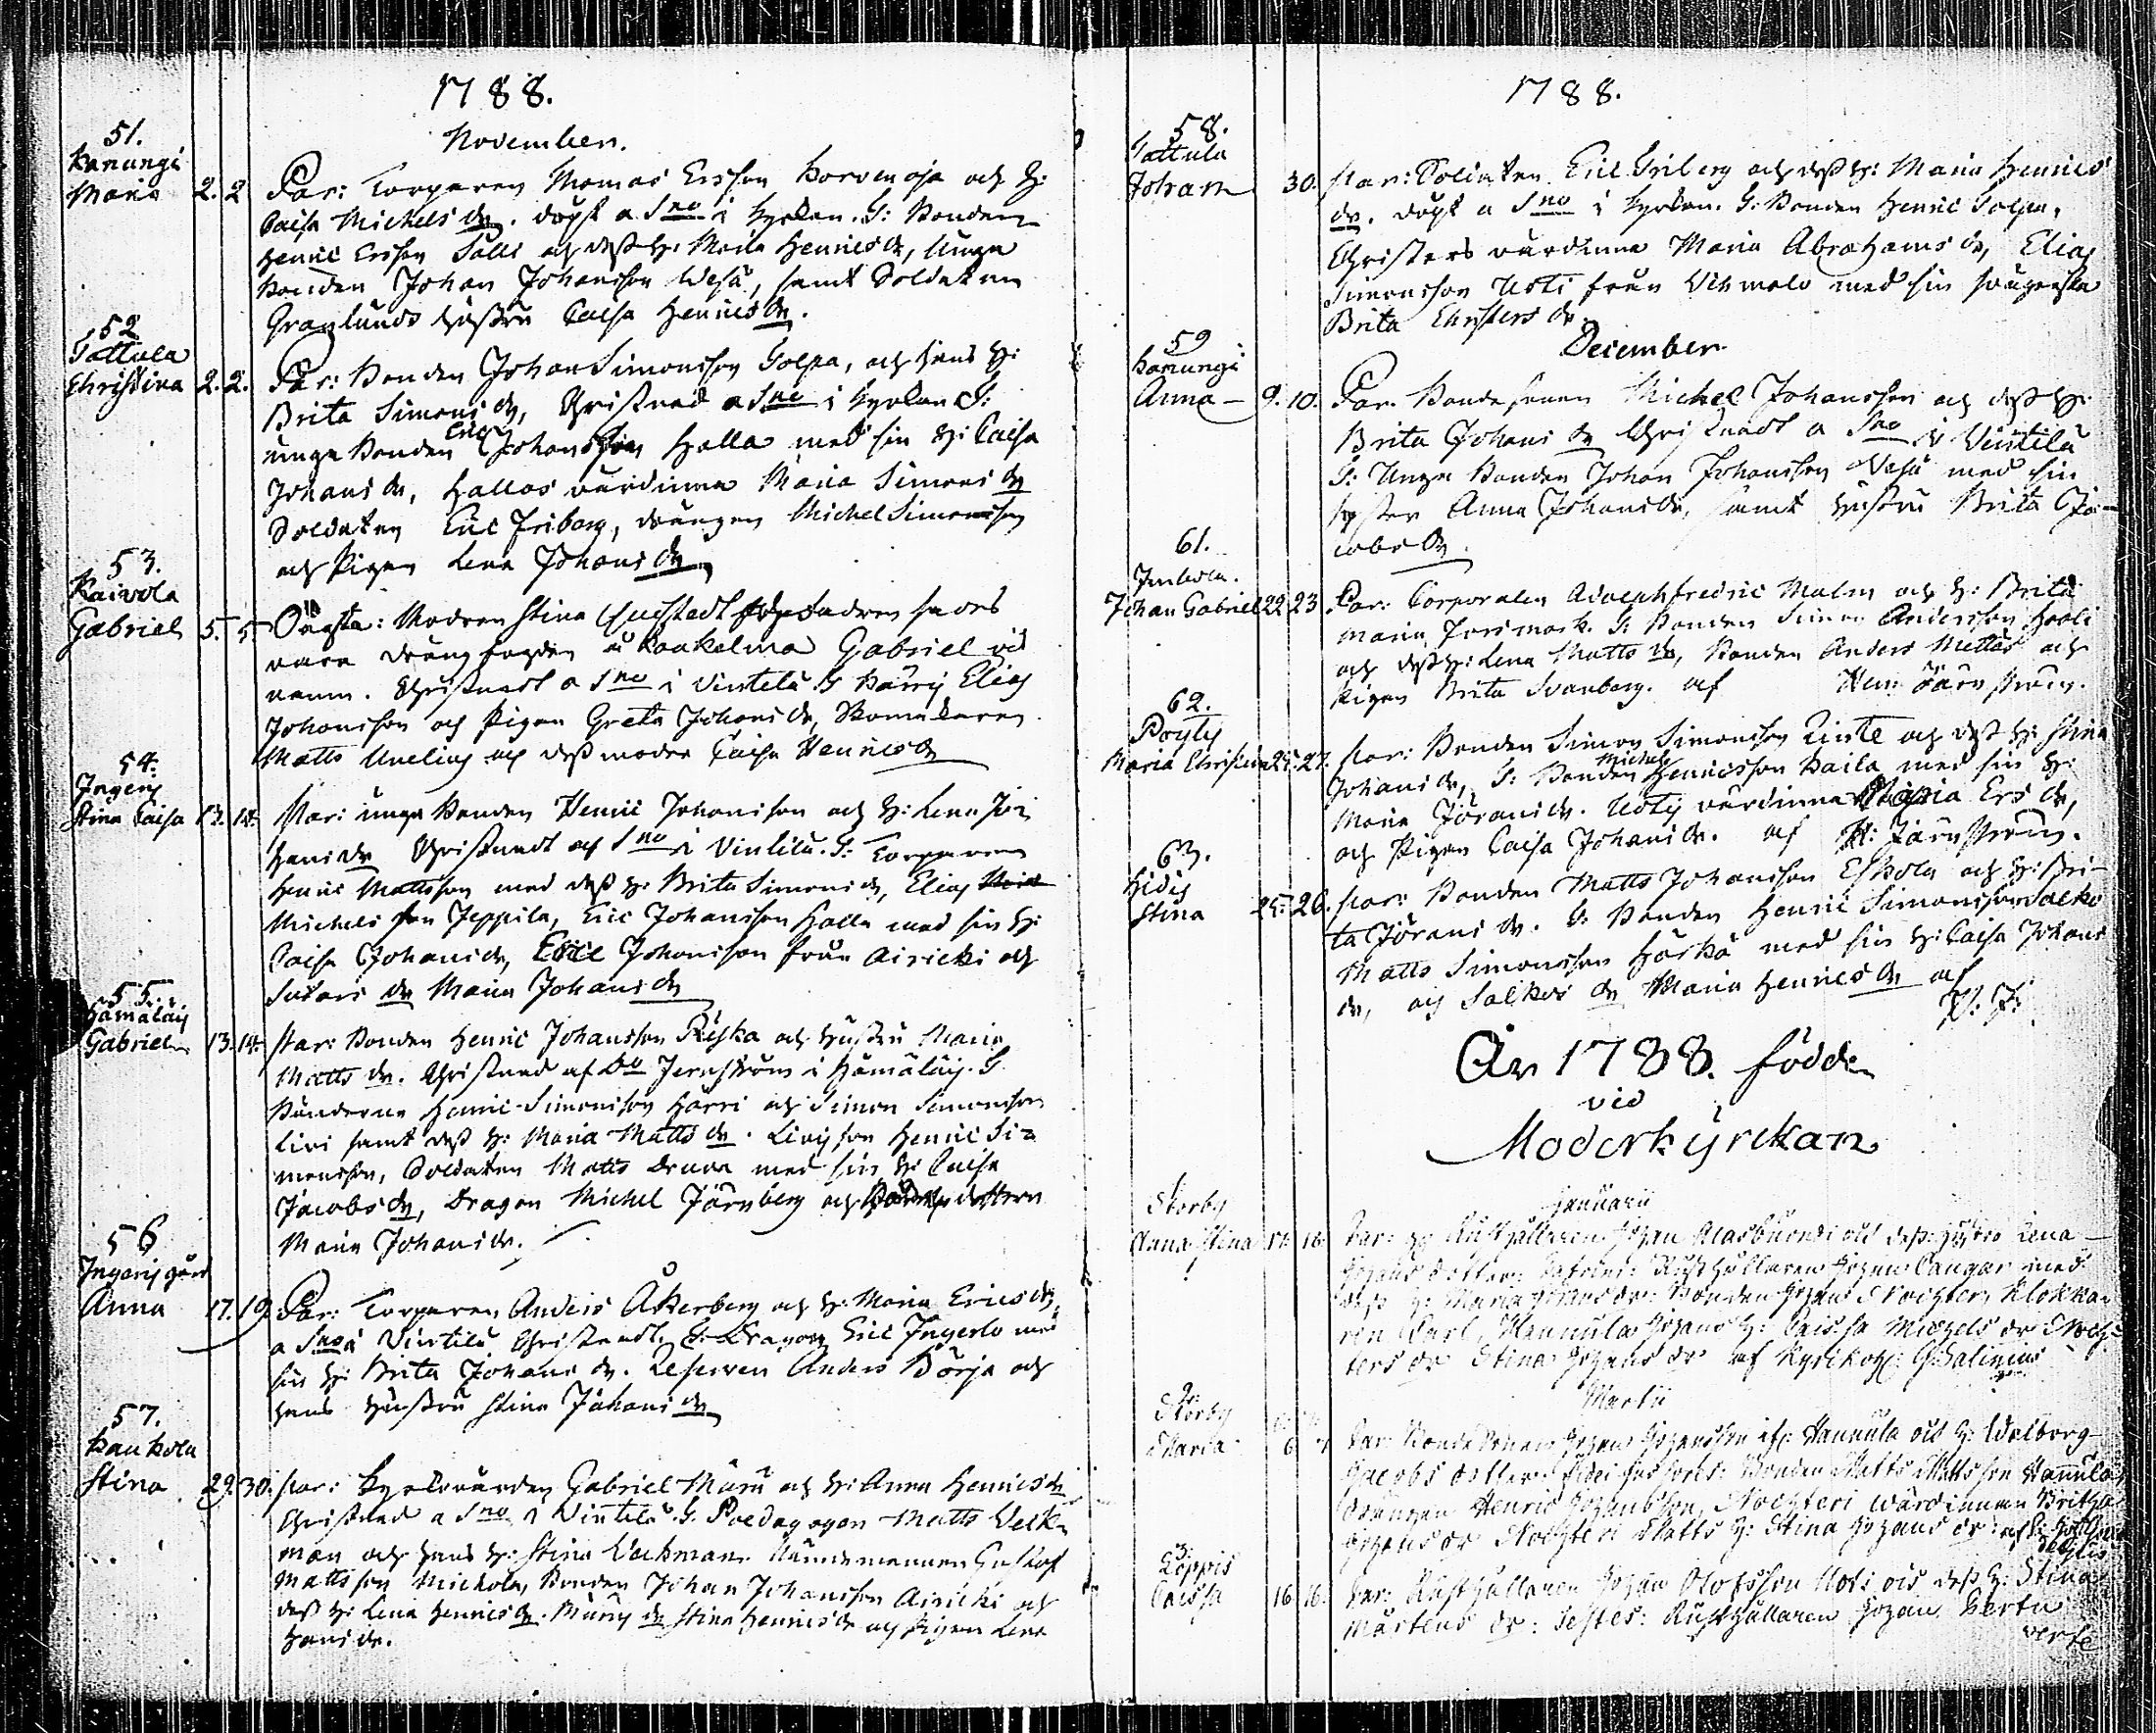 1788.
November.
51.
Kanungi
Maria 2. 2 Par: Torparen Thomas Ersson Korvenoja och H:
Caisa Michels dr. döpt a Sno i Kyrkan. T: Bonden
Henric Ersson Salli och dess H: Maria Henrics dr, Unga
Bonden Johan Johansson Wesa, samt Soldaten
Granlunds hustru Caisa Henrics dr.
52
Tattula
Christina 2. 2. Par: Bonden Johan Simonsson Tolpa, och hans H:
Brita Simons dr, Christnad a Sno i Kyrkan T:
unga Bonden Eric Johansson Halla med sin H: Caisa
Johans dr, Hallas värdinna Maria Simons dr
Soldaten Eric Friberg, drängen Michel Simonsson
och Pigan Lena Johans dr
53.
Kaivola
Gabriel 5. 5 Oägta: Modren Stina fadren sades
vara drängfogden å Kaukelma Gabriel vid
namn. Christnadt a Sno i Vintila. T Elias
Johansson och Pigan Greta Johans dr, Skomakaren
Matts Unelius och dess moder Caisa Henrics dr
54.
Ingeris
Stina Caisa 13. 14. Par: unga Bonden Henric Johansson och H: Lena Jo-
hans dr Christnadt af Sno i Vintila. T: Torparen
Henric Mattsson med dess H: Brita Simons dr, Elias
Michels son Jeppila, Eric Johansson Halla med sin H:
Caisa Johans dr, Eric Johansson från Airicki och
dr Maria Johans dr
55.
Hämäläis
Gabriel 13. 14. Par: Bonden Henric Johansson Riska och Hustru Maria
Matts dr. Christnad af Do Jernström i Hämäläis. T.
Bönderne Henric Simonsson Härri och Simon Simonsson
Livi samt dess H: Maria Matts dr. Livis son Henric Si-
monsson, Soldaten Matts med sin H: Caisa
Jacobs dr, Dragon Michel Järnberg och dottren
Maria Johans dr.
56
Ingeris gård
Anna 17. 19. Par: Torparen Anders Åkerberg och H: Maria Erics dr,
a Sno i Vintila Christnadt. T: Dragon Eric Ingerlo med
sin H: Brita Johans dr. Reserven Anders Börja och
hans Hustru Stina Johans dr
57.
Kaukola
Stina 29. 30. Par: Kyrkovärden Gabriel Maru och H: Anna Henrics dr
Christnad a Sno i Vintila. T. Poedagogen Matts Weck-
man och hans H: Stina Weckman. Nämndemannen Gustaf
Mattsson Michola, Bonden Johan Johansson Airicki och
dess H: Lena Henrics dr. dr Stina Henrics dr och Pigan Lena
Hans dr.
1788.
58.
Tattula
Johan 30. Par: Soldaten Eric Friberg och dess H: Maria Henrics
dr. döpt a Sno i Kyrkan. T. Bonden Henric Tolpa,
Christers värdinna Maria Abrahams dr, Elias
Simonsson Uoti från Vehmalo med sin
Brita Christers dr.
December
59
Kanungi
Anna 9. 10. Par. Bondesonen Michel Johansson och dess H:
Brita Johans dr Christnadt a Sno i Vintila
T: Unga Bonden Johan Johansson Wesa med sin
syster Anna Johans dr, samt hustru Brita Ja-
cobs dr.
61.
Johan Gabriel 22 23 Par: Corporalen Adolph Fredric Malm och H: Brita
Maria Forsmark. T: Bonden Simon Andersson
och dess H: Lena Matts dr, Bonden Anders Mettäs och
Pigan Brita Svanberg. af Hen: Järnström.
62.
Pöyty
Maria Christina 25. 27. Par: Bonden Simon Simonsson Rinte och dess H: Stina
Johans dr, T: Bonden Michel Henricsson Kaila med sin H:
Maria Jörans dr. värdinna Maria Ers dr,
och Pigan Caisa Johans dr. af H: Järnström.
63.
Hidis
Stina 25. 26. Par: Bonden Matts Johansson Eskola och H: Bri-
ta Jörans dr. T: Bonden Henric Simonsson Salko
Matts Simonsson med sin H: Caisa Johans
dr, och Salkos dr Maria Henrics dr af
H: J:
År 1788. födde
vid
Moderkyrckan
Januarii
Storby
Anna Stina 17. 18. Par: Rusthållaren Johan och dess hustru Lena
Johans dotter: Rusthållaren Johan Cangar med
dess H: Maria Johans dr: Bonden Johan Nochter, Klocka-
ren Carl, Hannula Johans H: Caissa Michels dr Noch-
ters dr Stina Johans dr af G: Salinius
Martii
2.
Storby
Maria 6 7 Par: Bonde Sonen Johan Johansson ifr: Hannula och H: Walborg
Jacobs dotter: Bonden Matts Mattsson Hannula,
Drängen Henric Johansson, Nochteri wärdinnan Britha
Johans dr Nochteri Matts H: Stina Johans dr:
3.
Löppis
Caissa 16 16. Par: Rusthållaren Johan Olofsson och dess H: Stina
Mårtens dr: Testes: Rusthållaren Johan Hertu
verte